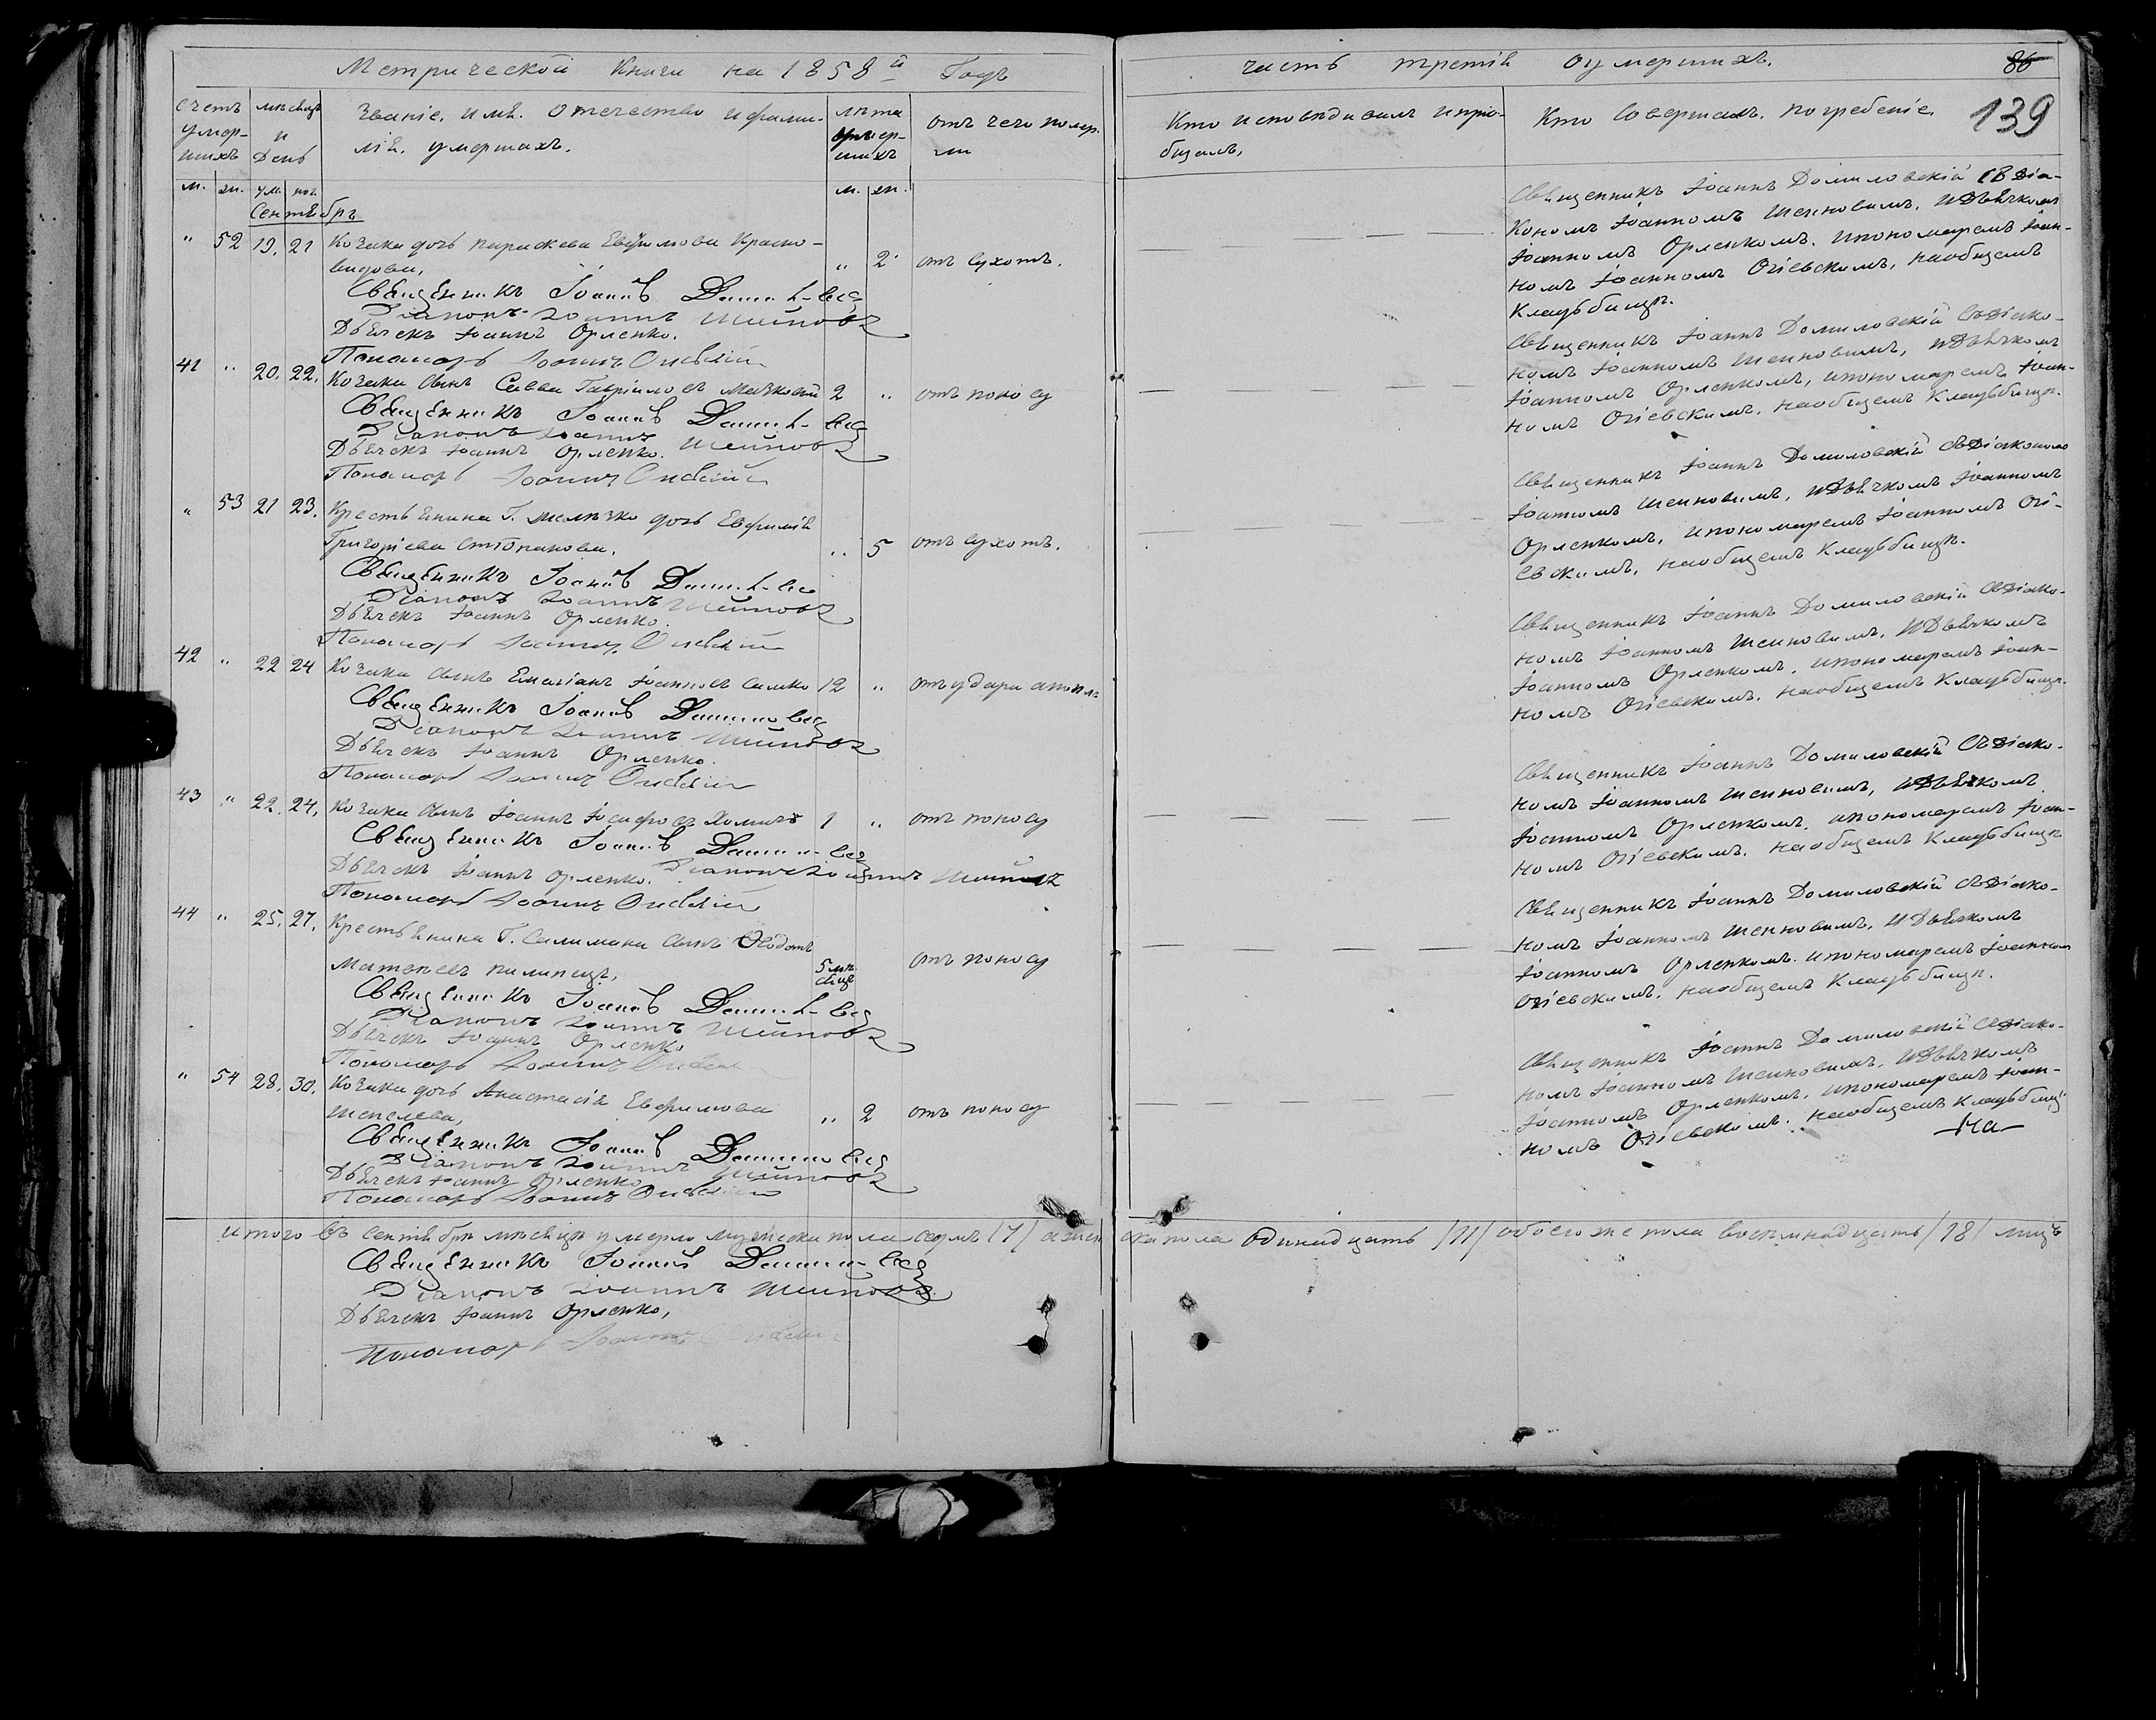 Метрической Книги на 1858й Годъ
часть третія оумершихъ.
86
139
счетъ умер-шихъ
мѣсяцъ и День
Званіе, имя, Отечество и фами-
лія, умершихъ.
лѣта умер-шихъ
отъ чего помер-ли
Кто исповѣдивалъ и прiо-
бщалъ,
Кто Совершалъ погребеніе,
м. ж. ум. пог. м. ж.
Сентябрь
" 52 19. 21 Козака дочь Параскева Евфимова Красно-
видова, " 2 отъ сухотъ.
Священникъ Іоаннъ
Діаконъ Іоаннъ Шеиновъ
Дьячекъ Іоаннъ Орленко.
Пономарь Іоаннъ Огіевскій
Священникъ Іоаннъ Домиловскій СЪ Діа-
кономъ Іоанномъ Шеиновымъ, и Дьячкомъ
Іоанномъ Орленкомъ, и пономаремъ Іоан-
номъ Іоанномъ Огіевскимъ, на общемъ
Кладбищѣ.
41 " 20. 22. Козака сынъ Савва Гавріиловъ 2 " отъ поносу
Священникъ Іоаннъ
Діаконъ Іоаннъ Шеиновъ
Дьячекъ Іоаннъ Орленко.
Пономарь Іоаннъ Огіевскій
Священникъ Іоаннъ Домиловскій съ Діако-
номъ Іоанномъ Шеиновымъ, и Дьячкомъ
Іоанномъ Орленкомъ, и пономаремъ Іоан-
номъ Огіевскимъ, на общемъ Кладбищѣ.
" 53 21 23. Крестьянина Г. дочь Евфимія
Григоріева Степанова, " 5 отъ сухотъ.
Священникъ Іоаннъ
Діаконъ Іоаннъ Шеиновъ
Дьячекъ Іоаннъ Орленко.
Пономарь Іоаннъ Огіевскій
Священникъ Іоаннъ Домиловскій съ Діакономъ
Іоанномъ Шеиновымъ, и Дьячкомъ Іоанномъ
Орленкомъ, и пономаремъ Іоанномъ Огі-
евскимъ, на общемъ Кладбищѣ.
42 " 22 24 Козака сынъ Емиліанъ Іоанновъ Симко 12 " отъ удара
Священникъ Іоаннъ
Діаконъ Іоаннъ Шеиновъ
Дьячекъ Іоаннъ Орленко.
Пономарь Іоаннъ Огіевскій
Священникъ Іоаннъ Домиловскій съ Діако-
номъ Іоанномъ Шеиновымъ, и Дьячкомъ
Іоанномъ Орленкомъ, и пономаремъ Іоан-
номъ Огіевскимъ, на общемъ Кладбищѣ.
43 " 22. 24. Козака сынъ Іоаннъ Іосифовъ Хомичъ 1 " отъ поносу
Священникъ Іоаннъ
Дьячекъ Іоаннъ Орленко. Діаконъ Іоаннъ Шеиновъ
Пономарь Іоаннъ Огіевскій
Священникъ Іоаннъ Домиловскій съ Діако-
номъ Іоанномъ Шеиновымъ, и Дьячкомъ
Іоанномъ Орленкомъ, и пономаремъ Іоан-
номъ Огіевскимъ, на общемъ Кладбищѣ
44 " 25. 27. Крестьянина Г. Салимона сынъ Ѳеодотъ
Матѳеевъ Пилипецъ, 5 мѣ-сяцъ отъ поносу
Священникъ Іоаннъ
Діаконъ Іоаннъ Шеиновъ
Дьячекъ Іоаннъ Орленко
Пономарь Іоаннъ
Священникъ Іоаннъ Домиловскій съ Діако-
номъ Іоанномъ Шеиновымъ, и Дьячкомъ
Іоанномъ Орленкомъ, и пономаремъ Іоанном
Огіевскимъ, на общемъ Кладбищѣ.
" 54 28. 30. Козака дочь Анастасія Евфимова
Шепелева, " 2 отъ поносу
Священникъ Іоаннъ
Діаконъ Іоаннъ Шеиновъ
Дьячекъ Іоаннъ Орленко
Пономарь Іоаннъ Огіевскій
Священникъ Іоаннъ Домиловскій съ Діако-
номъ Іоанномъ Шеиновымъ, и Дьячкомъ
Іоанномъ Орленкомъ, и пономаремъ Іоан-
номъ Огіевскимъ, на общемъ Кладбищѣ
итого въ Сентябрѣ мѣсяцѣ умерло мужеска пола седмъ /7/ а жен ска пола одинадцать /11/ обоего же пола восемнадцать /18/ лицъ
Священникъ Іоаннъ
Діаконъ Іоаннъ Шеиновъ
Дьячекъ Іоаннъ Орленко,
Пономарь Іоаннъ Огіевскій